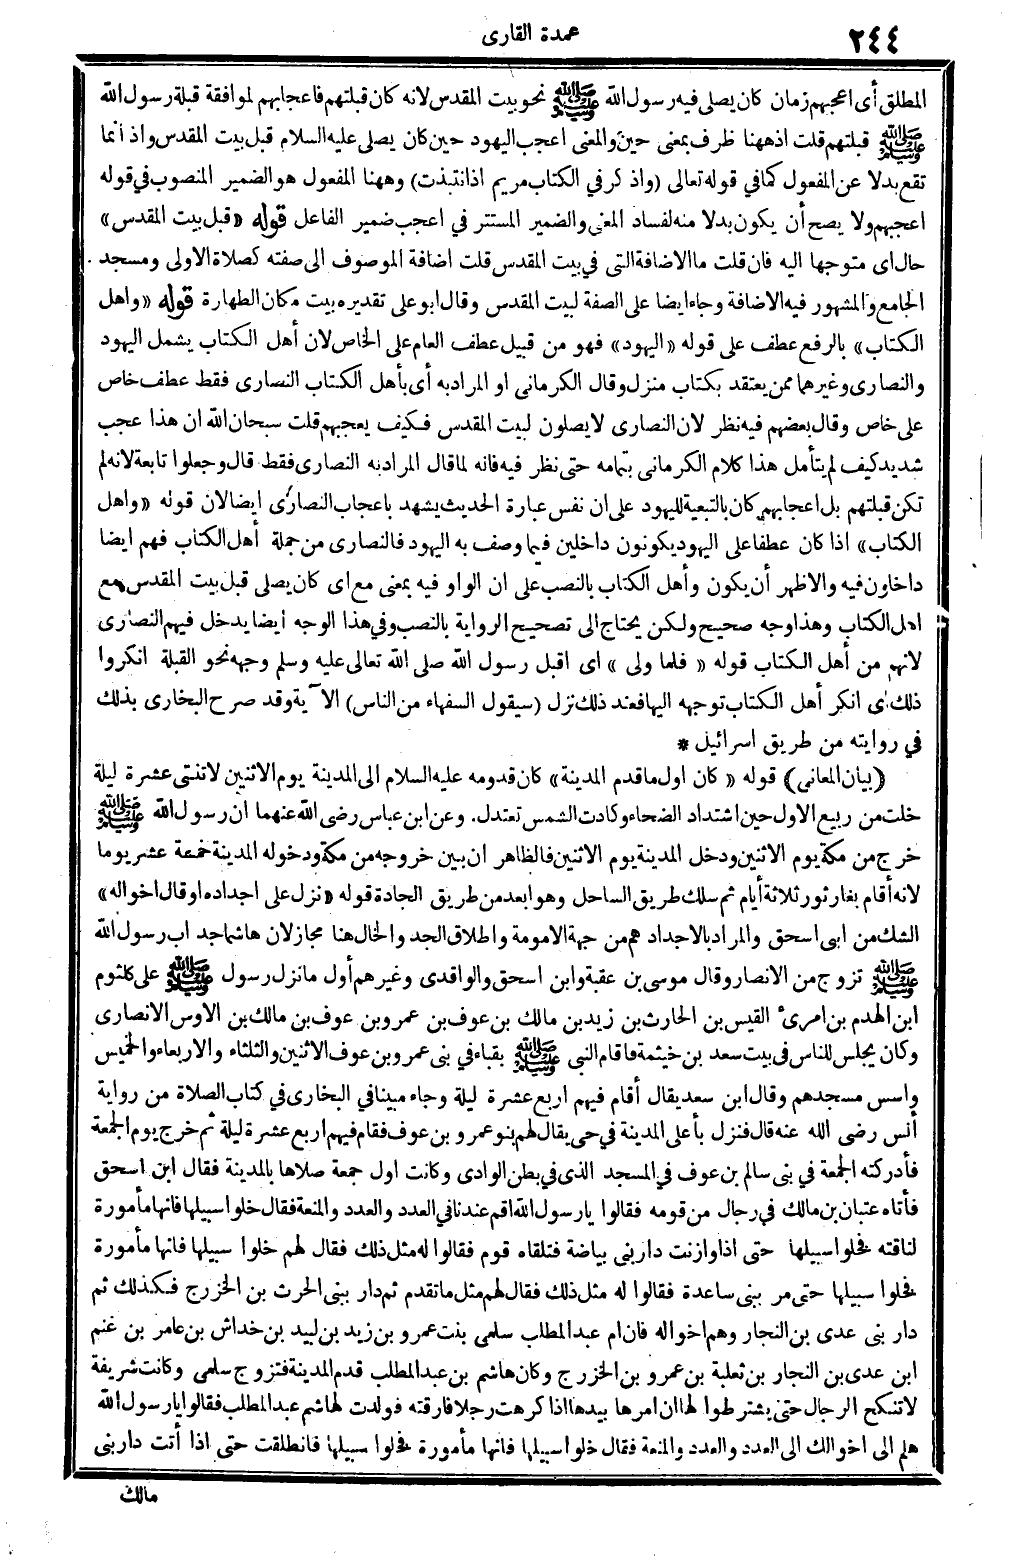 ٢٤٤
عمدة القارى
المطلق أى اعجبهم زمان كان يصلى فيه رسول الله ﷺ نحو بيت المقدس لانه كان قبلتهم فاعجابهم لموافقة قبلة رسول الله
ﷺ قبلتهم قلت اذ ههنا ظرف بمعنى حين والمعنى اعجب اليهود حين كان يصلى عليه السلام قبل بيت المقدس واذ انما
تقع بدلا عن المفعول كما في قوله تعالى (واذكر في الكتاب مريم اذ انتبذت) وههنا المفعول هو الضمير المنصوب في قوله
اعجبهم ولا يصح أن يكون بدلا منه لفساد المعنى والضمير المستتر في اعجب ضمير الفاعل قوله «قبل بيت المقدس»
حال اى متوجها اليه فان قلت ما الاضافة التى في بيت المقدس قلت اضافة الموصوف الى صفته كصلاة الاولى ومسجد
الجامع والمشهور فيه الاضافة وجاء ايضا على الصفة لبيت المقدس وقال ابو على تقديره بيت مكان الطهارة قوله «واهل
الكتاب» بالرفع عطف على قوله «اليهود» فهو من قبيل عطف العام على الخاص لان أهل الكتاب يشمل اليهود
والنصارى وغيرهما ممن يعتقد بكتاب منزل وقال الكرمانى او المراد به أى بأهل الكتاب النصارى فقط عطف خاص
على خاص وقال بعضهم فيه نظر لان النصارى لا يصلون لبيت المقدس فكيف يعجبهم قلت سبحان الله ان هذا عجب
شديد كيف لم يتأمل هذا كلام الكرمانى بتمامه حتى نظر فيه فانه لما قال المراد به النصارى فقط قال وجعلوا تابعة لانه لم
تكن قبلتهم بل اعجابهم كان بالتبعية لليهود على ان نفس عبارة الحديث يشهد باعجاب النصارى ايضا لان قوله «واهل
الكتاب» اذا كان عطفا على اليهود يكونون داخلين فيما وصف به اليهود فالنصارى من جملة أهل الكتاب فهم ايضا
داخلون فيه والاظهر أن يكون وأهل الكتاب بالنصب على ان الواو فيه بمعنى مع اى كان يصلى قبل بيت المقدس مع
اهل الكتاب وهذا وجه صحيح ولكن يحتاج الى تصحيح الرواية بالنصب وفي هذا الوجه أيضا يدخل فيهم النصارى
لانهم من أهل الكتاب قوله «فلما ولى» اى اقبل رسول الله صلى الله تعالى عليه وسلم وجهه نحو القبلة انكروا
ذلك اى انكر أهل الكتاب توجهه اليها فعند ذلك نزل (سيقول السفهاء من الناس) الآية وقد صرح البخارى بذلك
في روايته من طريق اسرائيل *
(بيان المعانى) قوله «كان اول ما قدم المدينة» كان قدومه عليه السلام الى المدينة يوم الاثنين لاثنتى عشرة ليلة
خلت من ربيع الاول حين اشتداد الضحاء وكادت الشمس تعتدل. وعن ابن عباس رضى الله عنهما ان رسول الله ﷺ
خرج من مكة يوم الاثنين ودخل المدينة يوم الاثنين فالظاهر ان بين خروجه من مكة ودخوله المدينة خمسة عشر يوما
لانه أقام بغار ثور ثلاثة أيام ثم سلك طريق الساحل وهو ابعد من طريق الجادة قوله «نزل على اجداده او قال اخواله»
الشك من ابى اسحق والمراد بالاجداد هم من جهة الامومة واطلاق الجد والخال هنا مجاز لان هاشما جد اب رسول الله
ﷺ تزوج من الانصار وقال موسى بن عقبة وابن اسحق والواقدى وغيرهم أول ما نزل رسول ﷺ على كلثوم
ابن الهدم بن امرئ القيس بن الحارث بن زيد بن مالك بن عوف بن عمرو بن عوف بن مالك بن الاوس الانصارى
وكان يجلس للناس فى بيت سعد بن خيثمة فاقام النبى ﷺ بقباء في بنى عمرو بن عوف الاثنين والثلثاء والاربعاء والخميس
واسس مسجدهم وقال ابن سعد يقال أقام فيهم اربع عشرة ليلة وجاء مبينا في البخارى في كتاب الصلاة من رواية
أنس رضى الله عنه قال فنزل بأعلى المدينة في حى يقال لهم بنو عمرو بن عوف فقام فيهم اربع عشرة ليلة ثم خرج يوم الجمعة
فأدركته الجمعة في بنى سالم بن عوف في المسجد الذى في بطن الوادى وكانت اول جمعة صلاها بالمدينة فقال ابن اسحق
فأتاه عتبان بن مالك في رجال من قومه فقالوا يا رسول الله اقم عندنا في العدد والعدد والمنعة فقال خلوا سبيلها فانها مأمورة
لناقته فخلوا سبيلها حتى اذا وازنت دار بنى بياضة فتلقاه قوم فقالوا له مثل ذلك فقال لهم خلوا سبيلها فانها مأمورة
فخلوا سبيلها حتى مر ببنى ساعدة فقالوا له مثل ذلك فقال لهم مثل ما تقدم ثم دار ببنى الحرث بن الخزرج فكذلك ثم
دار بنى عدى بن النجار وهم اخواله فان ام عبد المطلب سلمى بنت عمرو بن زيد بن لبيد بن خداش بن عامر بن غنم
ابن عدى بن النجار بن ثعلبة بن عمرو بن الخزرج وكان هاشم بن عبد المطلب قدم المدينة فتزوج سلمى وكانت شريفة
لا تنكح الرجال حتى يشترطوا لها ان امرها بيدها اذا كرهت رجلا فارقته فولدت لهاشم عبد المطلب فقالوا يا رسول الله
هلم الى اخوالك الى العدد والعدد والمنعة فقال خلوا سبيلها فانها مأمورة فخلوا سبيلها فانطلقت حتى اذا أتت دار بنى
مالك